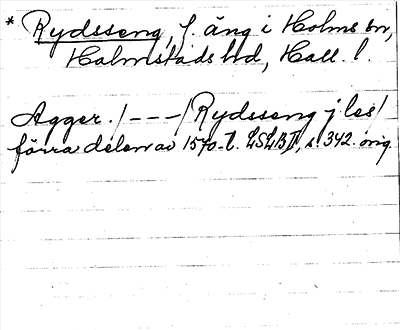 * Rydsseng, f. äng i Holms sn,
Halmstads hd, Hall. l.
Agger. / - - - / Rydsseng j les /
förra delen av 1570-t. LSLBII, s. 342. orig.